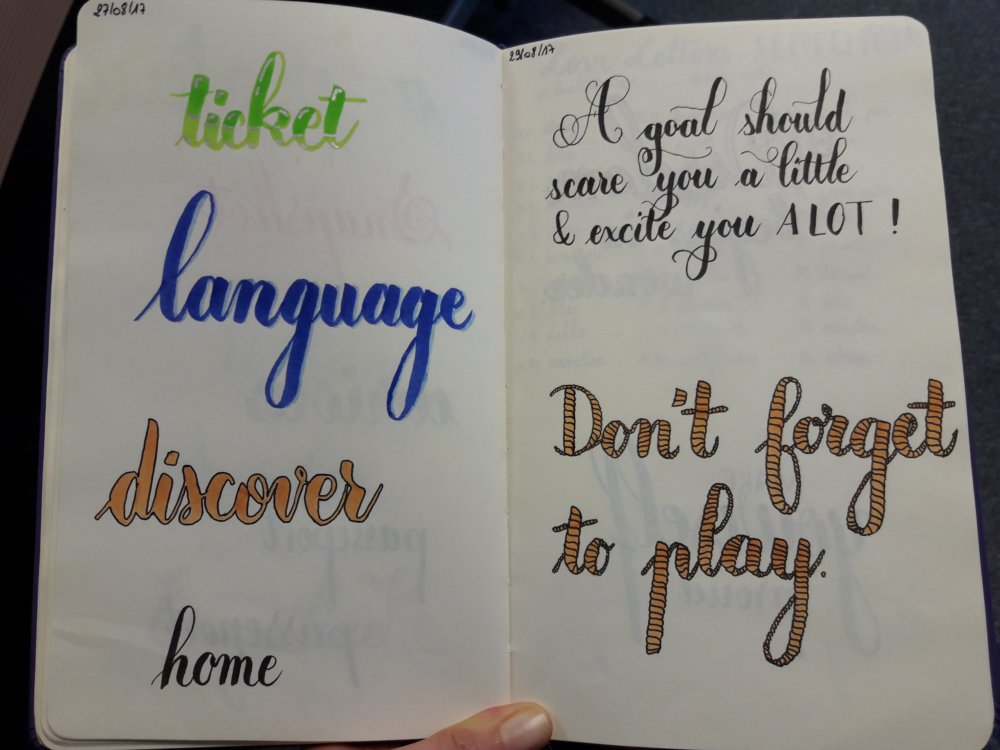 27/08/17
ticket
language
discover
home
29/08/17
A goal should
scare you a little
& excite you A LOT !
Don't forget
to play.